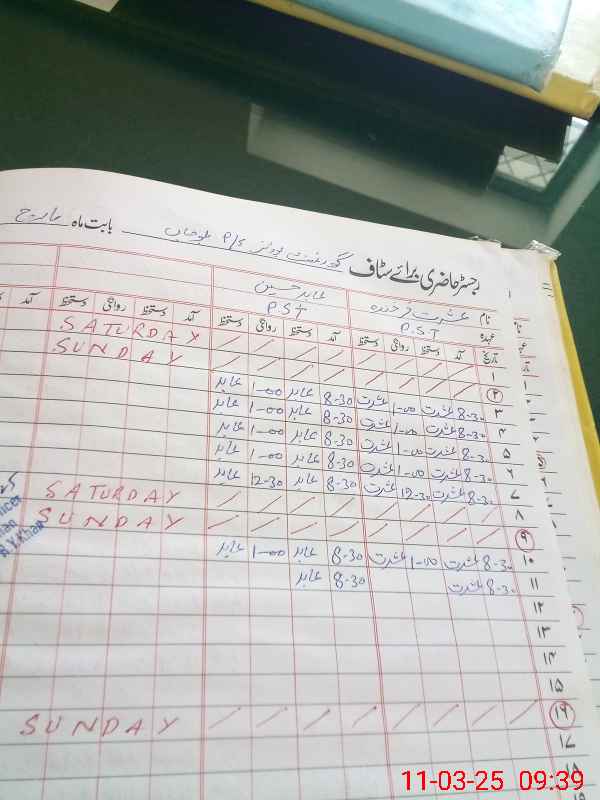 رجسٹر حاضری برائے سٹاف گورنمنٹ بوائز P/S بابت ماہ مارچ
نام عشرت فرخندہ عابد حسین
عہدہ P.S.T P.S.T
تاریخ آمد دستخط روانگی دستخط آمد دستخط روانگی دستخط آمد دستخط روانگی دستخط آمد
۱ SATURDAY
۲ SUNDAY
۳ 8-30 عشرت 1-00 عشرت 8-30 عابد 1-00 عابد
۴ 8-30 عشرت 1-00 عشرت 8-30 عابد 1-00 عابد
۵ 8-30 عشرت 1-00 عشرت 8-30 عابد 1-00 عابد
۶ 8-30 عشرت 1-00 عشرت 8-30 عابد 1-00 عابد
۷ 8-30 عشرت 12-30 عشرت 8-30 عابد 12-30 عابد
۸ SATURDAY
۹ SUNDAY
۱۰ 8-30 عشرت 1-00 عشرت 8-30 عابد 1-00 عابد
۱۱ 8-30 عشرت 8-30 عابد
۱۲
۱۳
۱۴
۱۵
۱۶ SUNDAY
۱۷
۱۸
R.Y.Khan
11-03-25 09:39